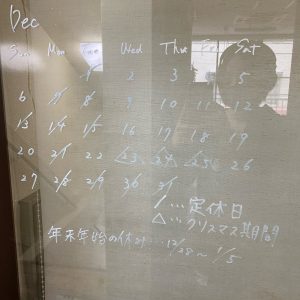 Dec
Sun Mon Tue Wed Thu Fri Sat
1 2 3 4 5
6 7 8 9 10 11 12
13 14 15 16 17 18 19
20 21 22 23 24 25 26
27 28 29 30 31
/...定休日
△...クリスマス期間
年末年始の休み...12/28〜1/5